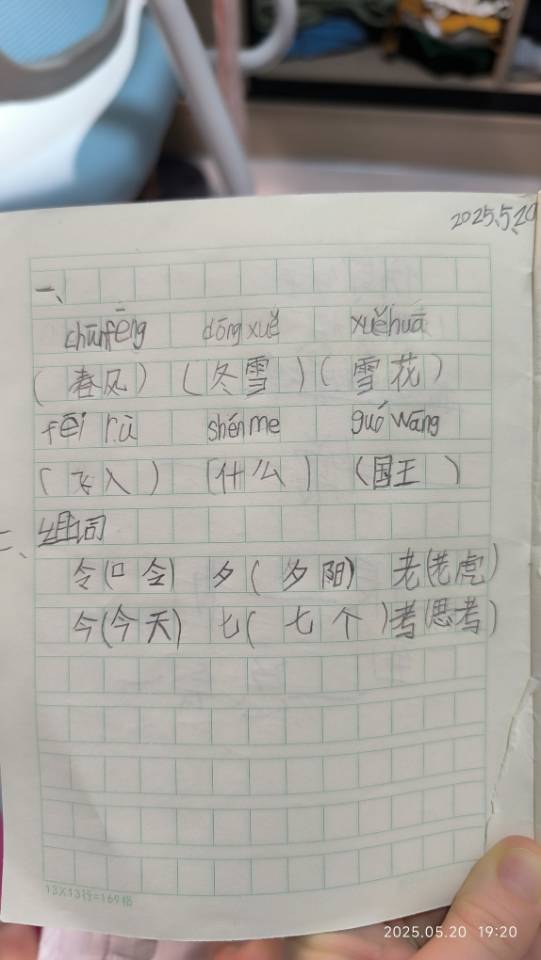 2025.5.20
一、
chūnfēng dōngxuě xuěhuā
(春风) (冬雪) (雪花)
fēi rù shénme guó wáng
(飞入) (什么) (国王)
二、组词
令(口令) 夕(夕阳) 老(老虎)
今(今天) 七(七个) 考(思考)
13X13行=169格
2025.05.20 19:20